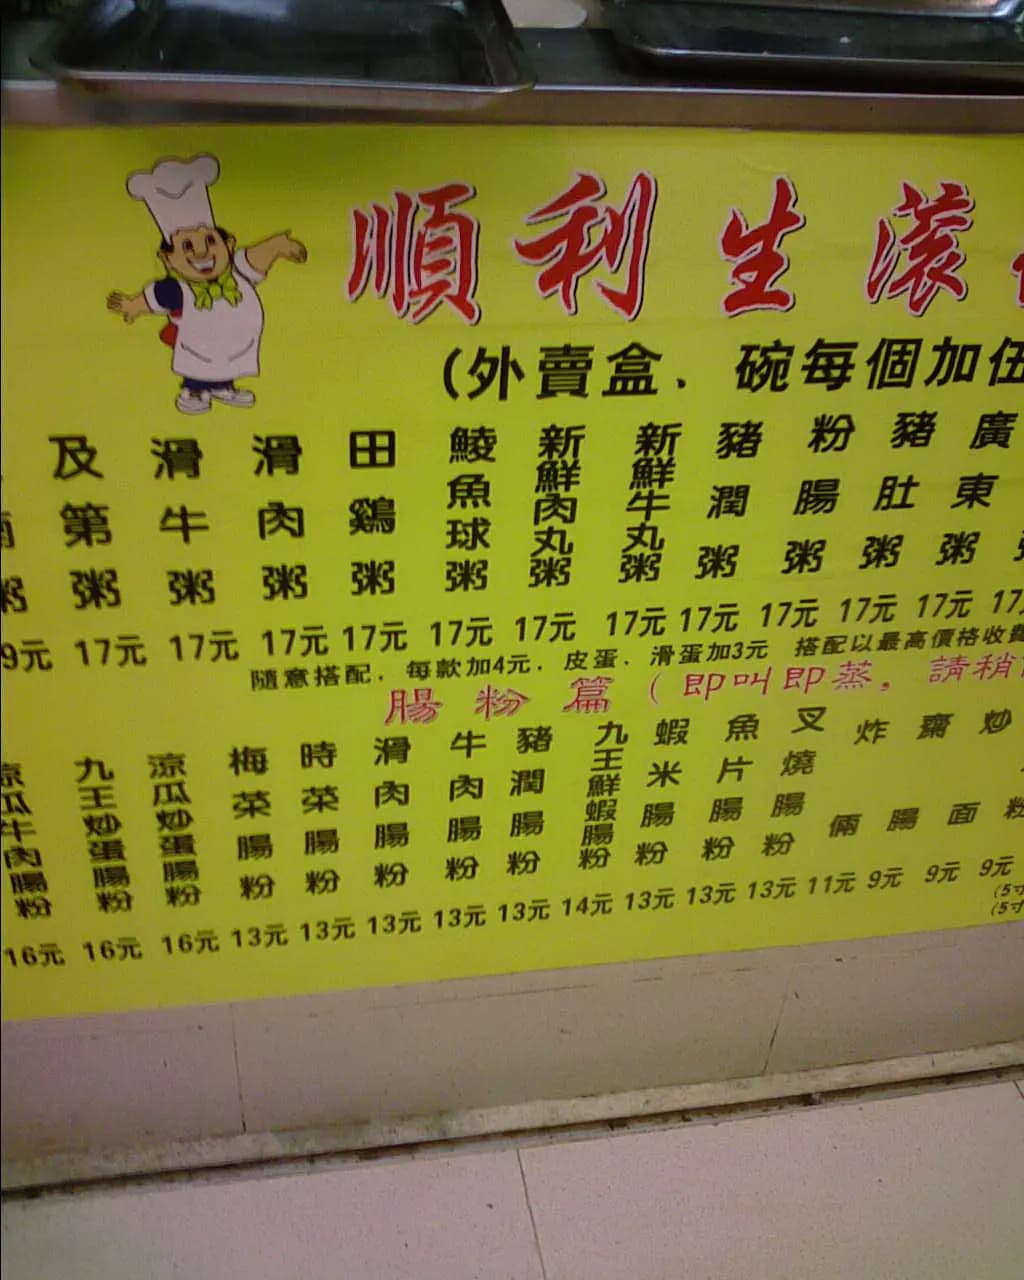 順利生滾
(外賣盒、碗每個加伍
及第粥
滑牛粥
滑肉粥
田鷄粥
鯪魚球粥
新鮮肉丸粥
新鮮牛丸粥
豬潤粥
粉腸粥
豬肚粥
廣東粥
9元 17元 17元 17元 17元 17元 17元 17元 17元 17元 17元 17元 17
隨意搭配、每款加4元、皮蛋、滑蛋加3元 搭配以最高價格收費
腸粉篇(即叫即蒸。請稍
涼瓜牛肉腸粉
九王炒蛋腸粉
涼瓜炒蛋腸粉
梅菜腸粉
時菜腸粉
滑肉腸粉
牛肉腸粉
豬潤腸粉
九王鮮蝦腸粉
蝦米腸粉
魚片腸粉
叉燒腸粉
炸倆
齋腸
炒面
16元 16元 16元 13元 13元 13元 13元 13元 14元 13元 13元 13元 11元 9元 9元 9元
(5寸
(5寸